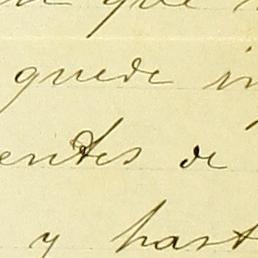 que
quede in
entes de
y hast